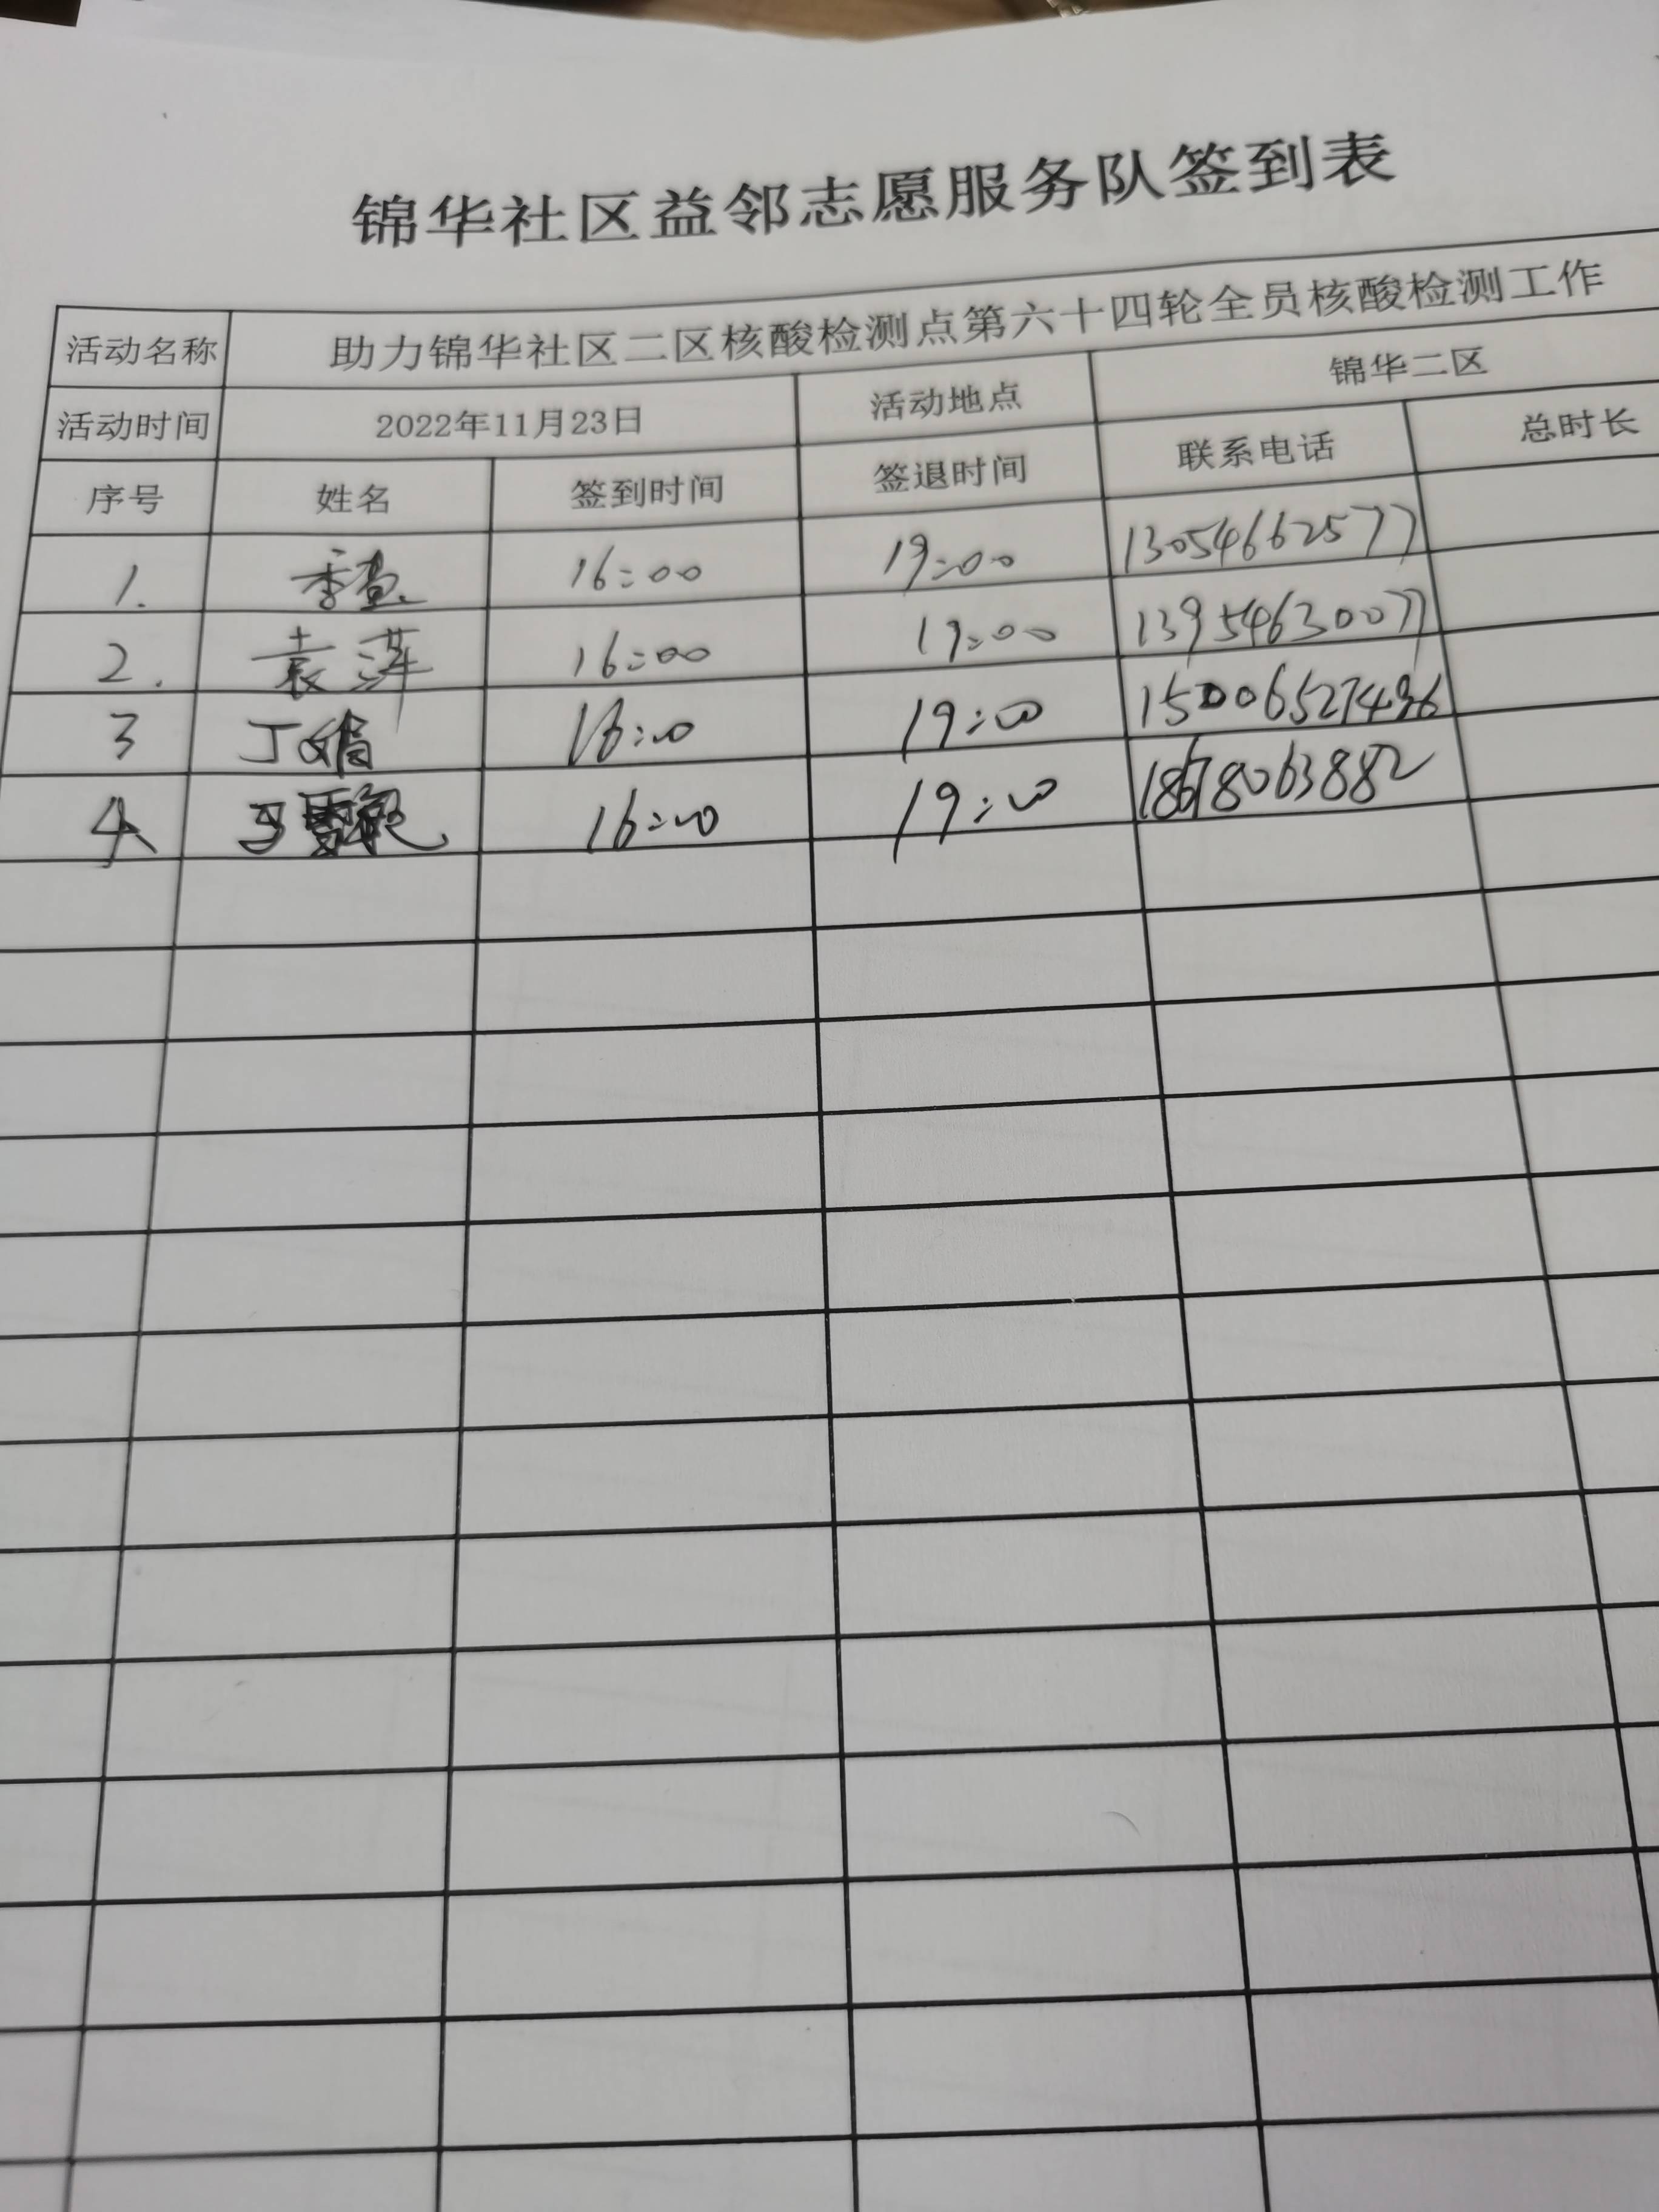 锦华社区益邻志愿服务队签到表
活动名称 助力锦华社区二区核酸检测点第六十四轮全员核酸检测工作
活动时间 2022年11月23日 活动地点 锦华二区
序号 姓名 签到时间 签退时间 联系电话 总时长
1. 16:00 19:00 13054662577
2. 袁萍 16:00 19:00 13954630077
3 丁娟 16:00 19:00 15006527436
4 16:00 19:00 18678063882